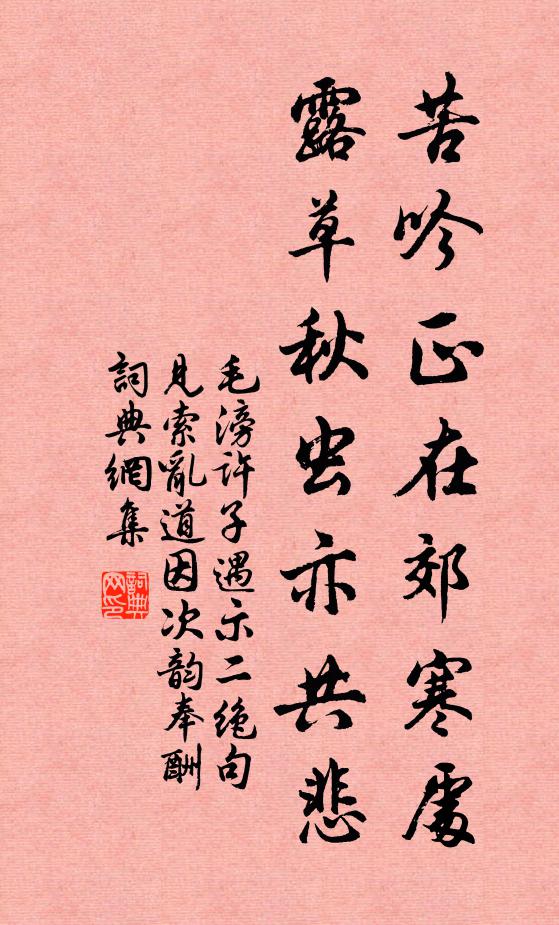 苦吟正在郊寒處
露草秋虫亦共悲
毛滂許子遇示二绝句
見索亂道因次韵奉酬
詞典網集
詞典网印